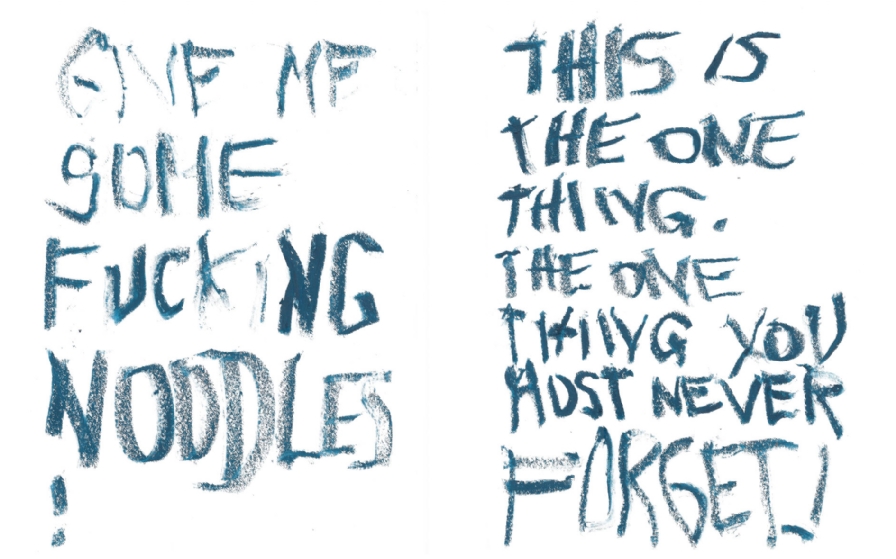 GIVE ME
SOME
FUCKING
NODDLES
!
THIS IS
THE ONE
THING.
THE ONE
THING YOU
MUST NEVER
FORGET!